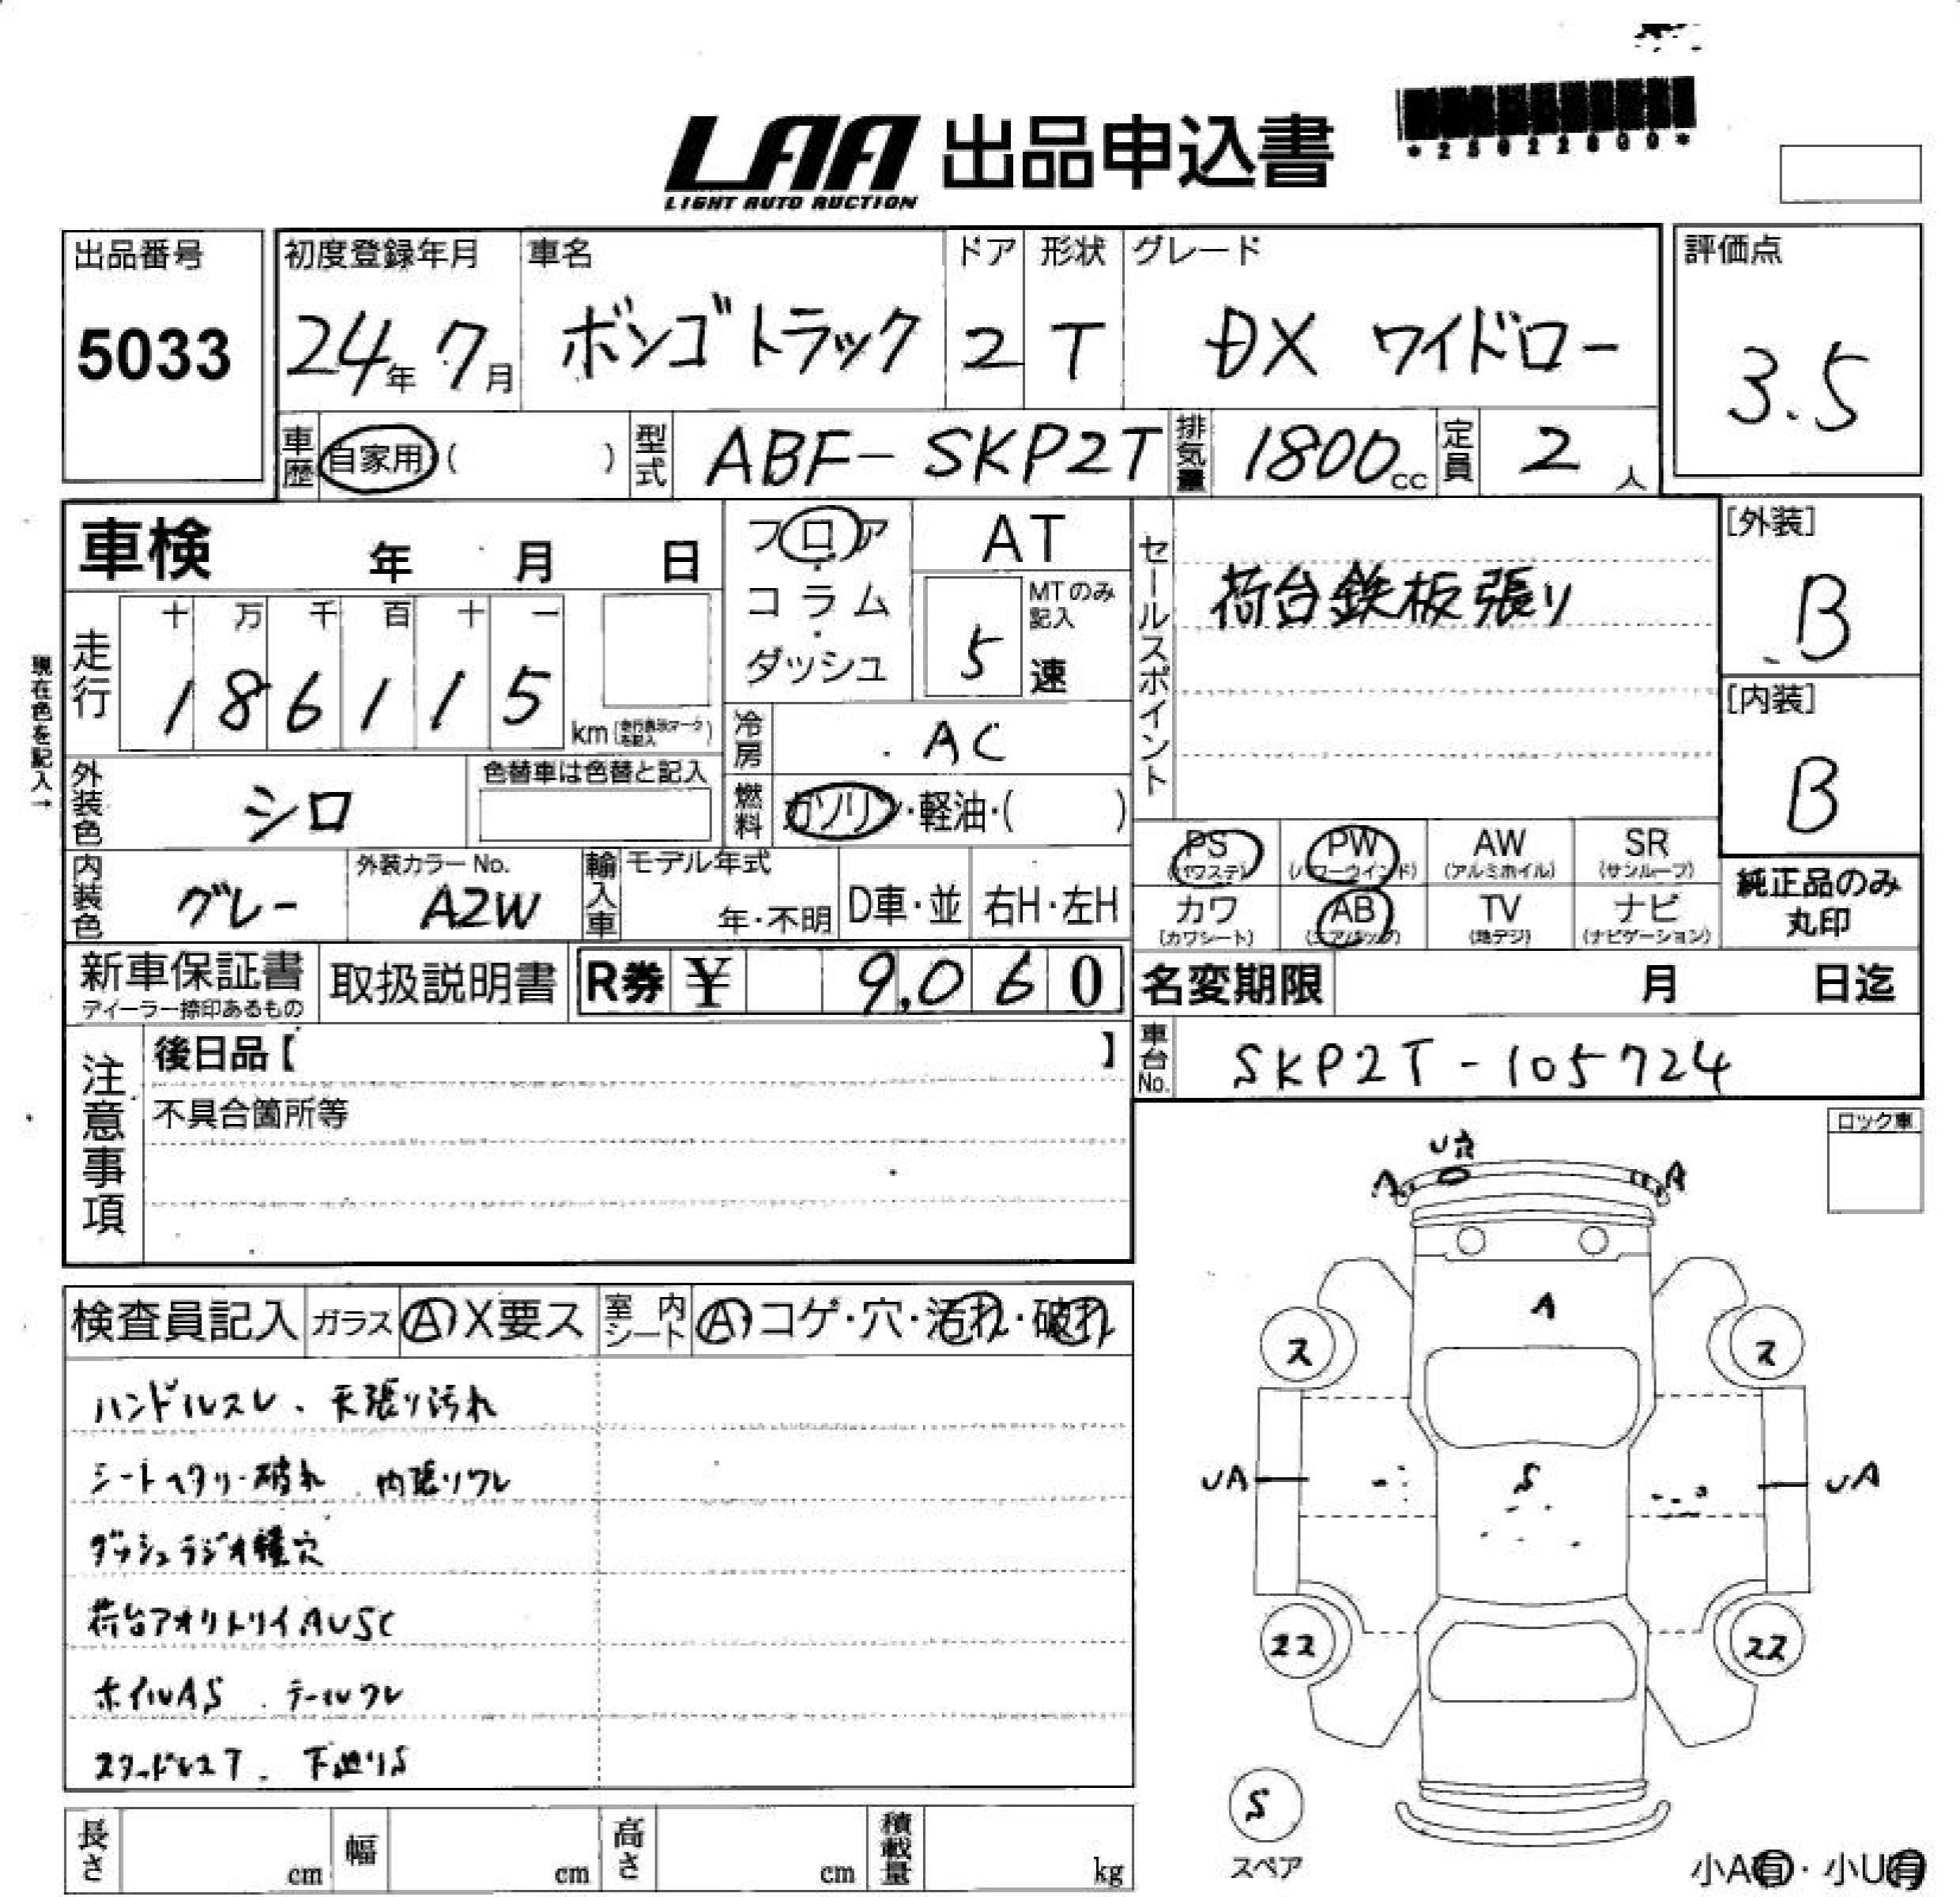 LAA 出品申込書
LIGHT AUTO AUCTION
出品番号
5033
初度登録年月
24年 7月
車名
ボンゴトラック
ドア
2
形状
T
グレード
DX ワイドロー
評価点
3.5
車歴 自家用 ( )
型式 ABF-SKP2T
排気量 1800cc
定員 2人
車検 年 月 日
フロア・コラム・ダッシュ
AT
MTのみ記入
5速
セールスポイント
荷台鉄板張り
[外装]
B
[内装]
B
現在色を記入→
走行
十 万 千 百 十 一
1 8 6 1 1 5
km
冷房 AC
燃料 ガソリン・軽油・( )
外装色 シロ
色替車は色替と記入
内装色 グレー
外装カラーNo.
A2W
輸入車
モデル年式
年・不明
D車・並
右H・左H
PS (パワステ)
PW (パワーウインド)
AW (アルミホイル)
SR (サンルーフ)
カワ (カワシート)
AB (エアバッグ)
TV (地デジ)
ナビ (ナビゲーション)
純正品のみ丸印
新車保証書
ディーラー捺印あるもの
取扱説明書
R券 ¥ 9,060
名変期限 月 日迄
車台No. SKP2T-105724
注意事項
後日品【 】
不具合箇所等
ロック車
検査員記入
ガラス A X 要ス
室内シート A コゲ・穴・汚れ・破れ
ハンドルスレ、天張り汚れ
シートヘタリ・破れ 内張りワレ
ダッシュラジオ横穴
荷台アオリトリイAUSC
ホイルAS テールワレ
スタッドレスT 下廻りS
A
A
A
ス
ス
UA
S
UA
22
22
S
スペア
長さ cm
幅 cm
高さ cm
積載量 kg
小A有・小U有